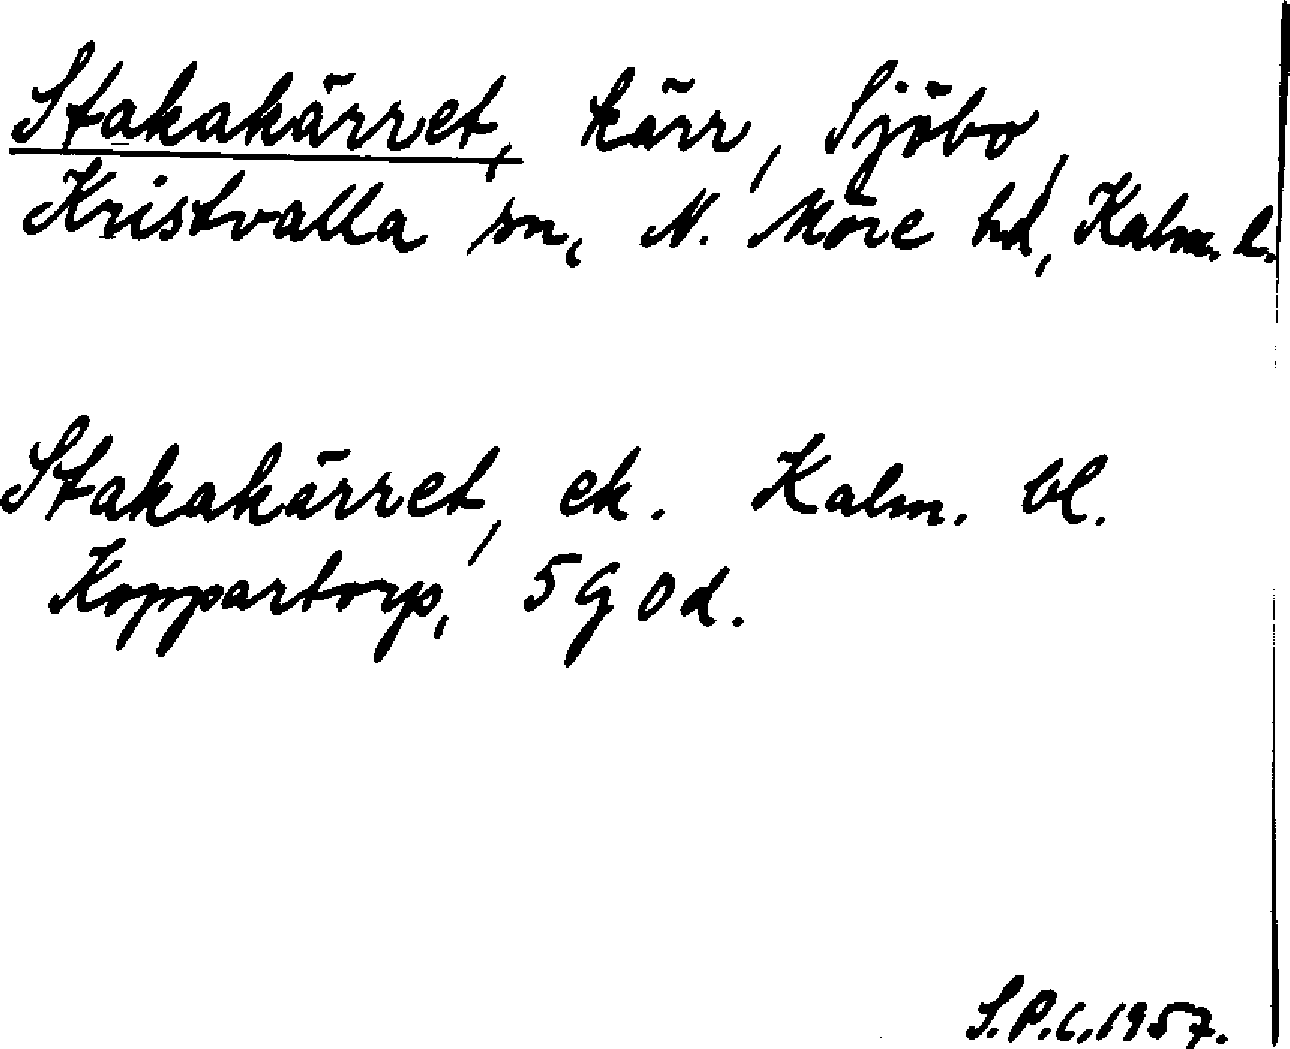 Stakakärret, kärr, Sjöbo,
Kristvalla sn, N. Möre hd, Kalm. l.
Stakakärret, ek. Kalm. bl.
Koppartorp, 5 G o d.
S.P.C. 1957.